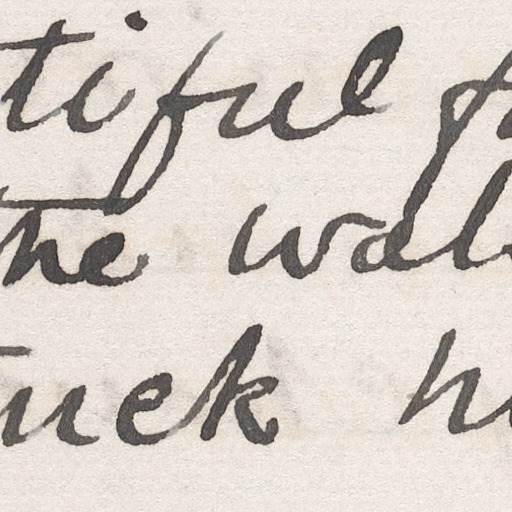 tiful
the wal
tuck